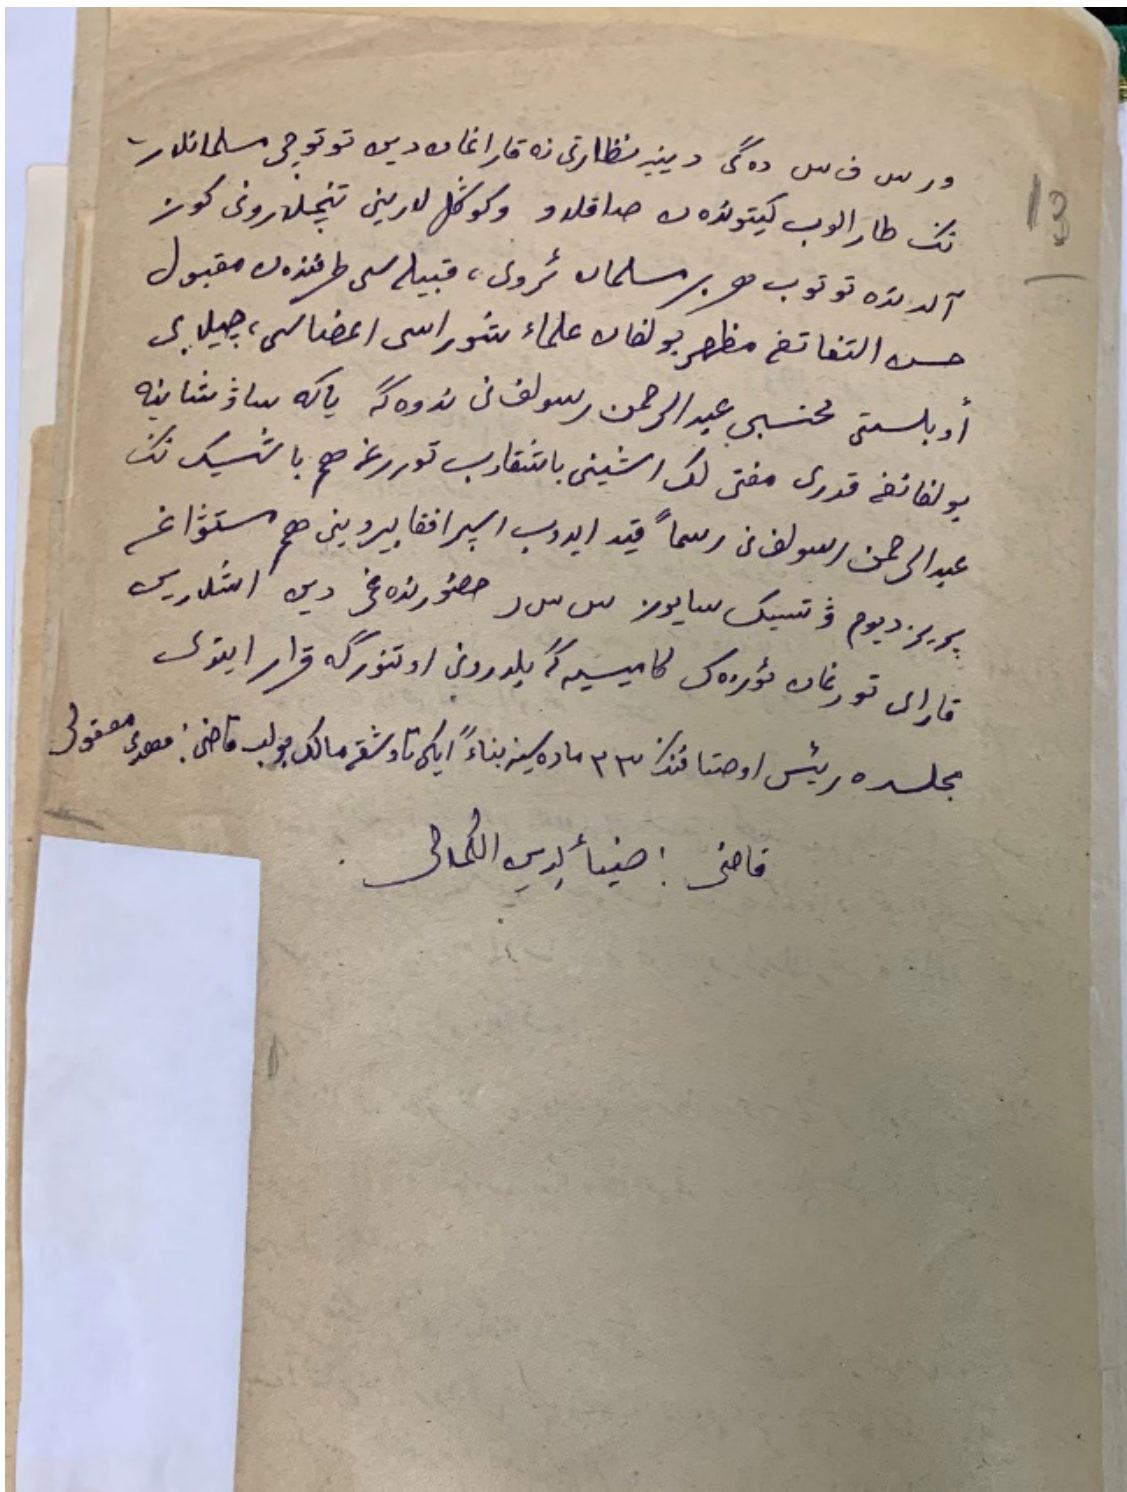 13
ور س ف س ده‌گی دینیه نظارتی نه قاراغان دین توتوچی مسلمانلار
نڭ طارالوب كیتونده‌ن صاقلاو وكوڭل لارینی تنچلارونی كوز
آلدنده توتوب هر بر مسلمان ئروی، قبیله سی طرفنده‌ن مقبول
حسن التفاتغه مظهر بولغان علماء شوراسی اعضاسی، چیلابی
أوبلستی محتسبی عبدالرحمن رسولف نی ندوه‌گه یاكه ساۋیشانیه
بولغانغه قدری مفتی لك اشینی باشقارب توررغه هم باشسیك نڭ
عبدالرحمن رسولف نی رسماً قید ایدوب اسپرافقا بیروینی هم مستۋاغه
پریزدیوم ۋتسیك سایوز س س ر حضورنده‌غی دین اشلارین
قارای تورغان ئوزه‌ك كامیسیه گه بلدرونی اوتنورگه قرار ایتدی
مجلسده رئیس اوصتافنڭ ٣٣ ماده سینه بناءً ایكی تاوشقه مالك بولب قاضی: مهدی مقولی
قاضی: ضیاءالدین الكمالی